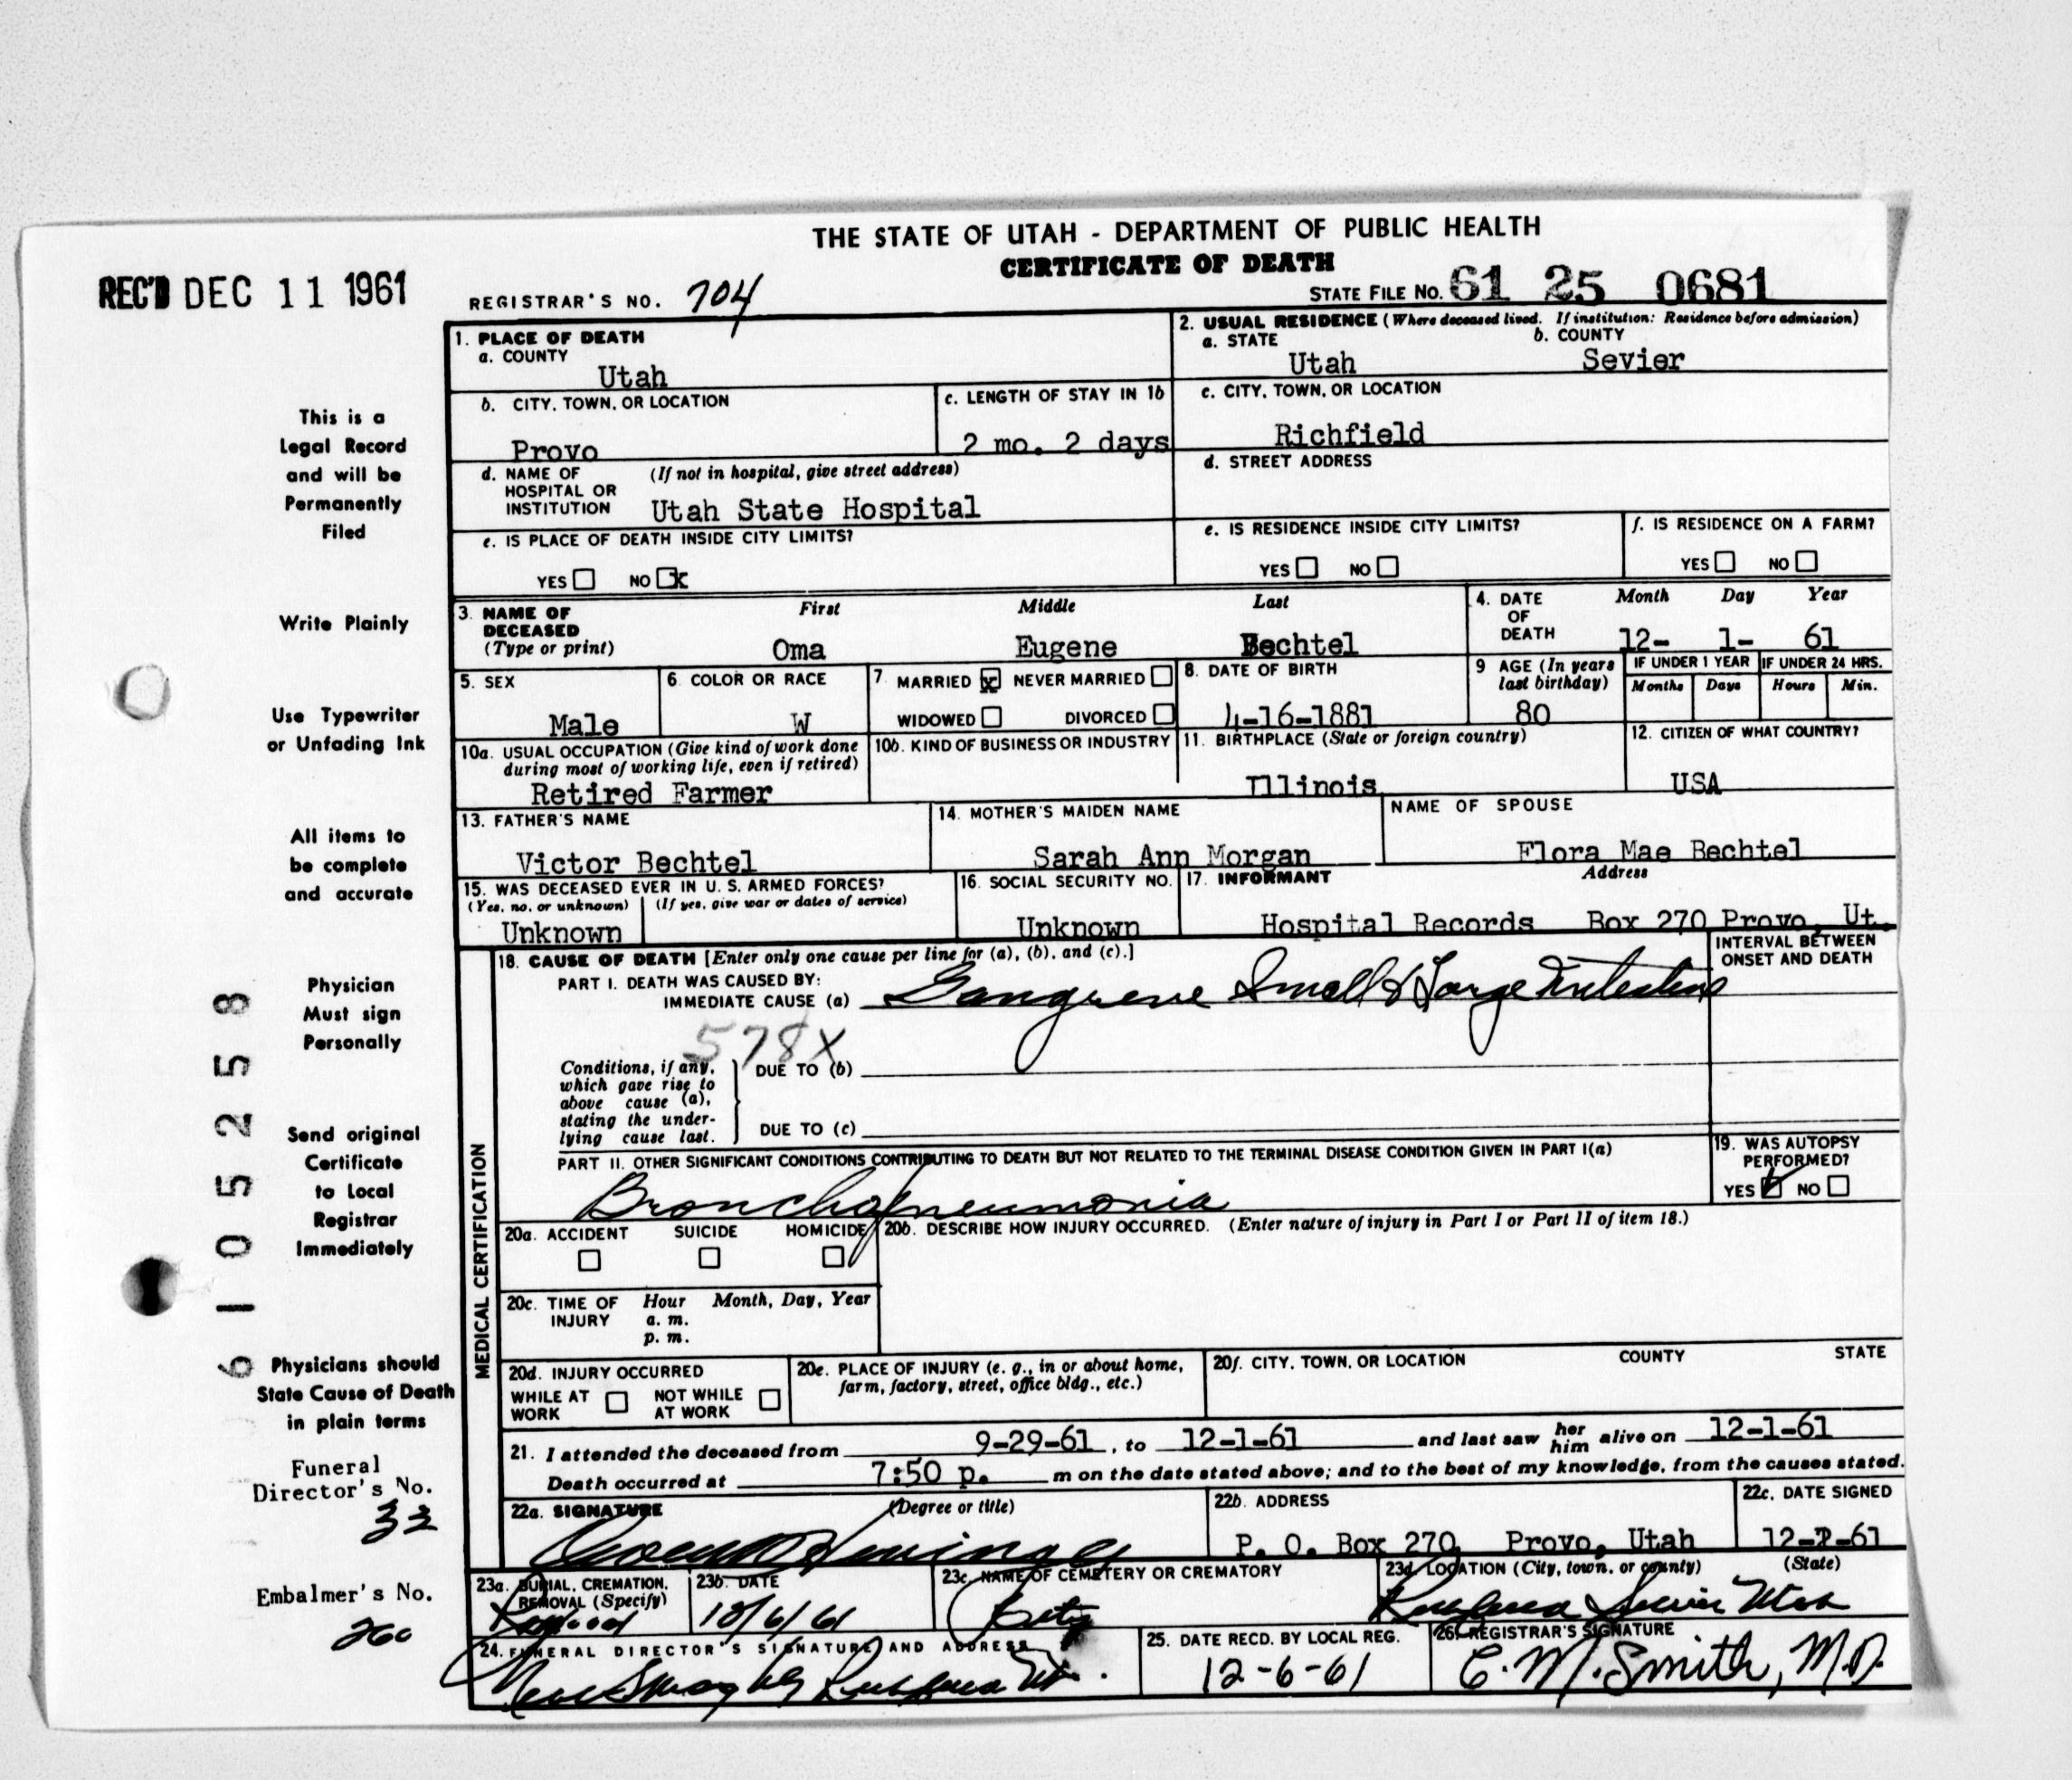 THE STATE OF UTAH - DEPARTMENT OF PUBLIC HEALTH
CERTIFICATE OF DEATH
REC'D DEC 11 1961
REGISTRAR'S NO. 704
STATE FILE NO. 61 25 0681
1. PLACE OF DEATH
a. COUNTY
Utah
2. USUAL RESIDENCE (Where deceased lived. If institution: Residence before admission)
a. STATE b. COUNTY
Utah Sevier
b. CITY, TOWN, OR LOCATION
Provo
c. LENGTH OF STAY IN 1b
2 mo. 2 days
c. CITY, TOWN, OR LOCATION
Richfield
d. NAME OF (If not in hospital, give street address)
HOSPITAL OR
INSTITUTION Utah State Hospital
d. STREET ADDRESS
e. IS PLACE OF DEATH INSIDE CITY LIMITS?
YES NO x
e. IS RESIDENCE INSIDE CITY LIMITS?
YES NO
f. IS RESIDENCE ON A FARM?
YES NO
3. NAME OF DECEASED
(Type or print)
First Middle Last
Oma Eugene Bechtel
4. DATE OF DEATH
Month Day Year
12- 1- 61
5. SEX
Male
6. COLOR OR RACE
W
7. MARRIED x NEVER MARRIED
WIDOWED DIVORCED
8. DATE OF BIRTH
4-16-1881
9 AGE (In years
last birthday)
80
IF UNDER 1 YEAR IF UNDER 24 HRS.
Months Days Hours Min.
10a. USUAL OCCUPATION (Give kind of work done
during most of working life, even if retired)
Retired Farmer
10b. KIND OF BUSINESS OR INDUSTRY
11. BIRTHPLACE (State or foreign country)
Illinois
12. CITIZEN OF WHAT COUNTRY?
USA
13. FATHER'S NAME
Victor Bechtel
14. MOTHER'S MAIDEN NAME
Sarah Ann Morgan
NAME OF SPOUSE
Flora Mae Bechtel
15. WAS DECEASED EVER IN U. S. ARMED FORCES?
(Yes, no, or unknown) (If yes, give war or dates of service)
Unknown
16. SOCIAL SECURITY NO.
Unknown
17. INFORMANT Address
Hospital Records Box 270 Provo, Ut.
MEDICAL CERTIFICATION
18. CAUSE OF DEATH [Enter only one cause per line for (a), (b), and (c).]
INTERVAL BETWEEN
ONSET AND DEATH
PART I. DEATH WAS CAUSED BY:
IMMEDIATE CAUSE (a) Gangrene Small & Large Intestine
578X
Conditions, if any,
which gave rise to
above cause (a),
stating the under-
lying cause last.
DUE TO (b)
DUE TO (c)
PART II. OTHER SIGNIFICANT CONDITIONS CONTRIBUTING TO DEATH BUT NOT RELATED TO THE TERMINAL DISEASE CONDITION GIVEN IN PART I(a)
Bronchopneumonia
19. WAS AUTOPSY
PERFORMED?
YES NO
20a. ACCIDENT SUICIDE HOMICIDE
20b. DESCRIBE HOW INJURY OCCURRED. (Enter nature of injury in Part I or Part II of item 18.)
20c. TIME OF INJURY Hour Month, Day, Year
a. m.
p. m.
20d. INJURY OCCURRED
WHILE AT WORK NOT WHILE AT WORK
20e. PLACE OF INJURY (e. g., in or about home,
farm, factory, street, office bldg., etc.)
20f. CITY, TOWN, OR LOCATION COUNTY STATE
21. I attended the deceased from 9-29-61, to 12-1-61 and last saw her him alive on 12-1-61
Death occurred at 7:50 p. m on the date stated above; and to the best of my knowledge, from the causes stated.
22a. SIGNATURE (Degree or title)
22b. ADDRESS
P. O. Box 270 Provo, Utah
22c. DATE SIGNED
12-2-61
23a. BURIAL, CREMATION,
REMOVAL (Specify)
23b. DATE
23c. NAME OF CEMETERY OR CREMATORY
City
23d. LOCATION (City, town, or county) (State)
Richfield Sevier Utah
24. FUNERAL DIRECTOR'S SIGNATURE AND ADDRESS
Richfield Ut.
25. DATE RECD. BY LOCAL REG.
12-6-61
26. REGISTRAR'S SIGNATURE
C. M. Smith, M.D.
This is a
Legal Record
and will be
Permanently
Filed
Write Plainly
Use Typewriter
or Unfading Ink
All items to
be complete
and accurate
Physician
Must sign
Personally
Send original
Certificate
to Local
Registrar
Immediately
Physicians should
State Cause of Death
in plain terms
Funeral
Director's No.
33
Embalmer's No.
260
61052558